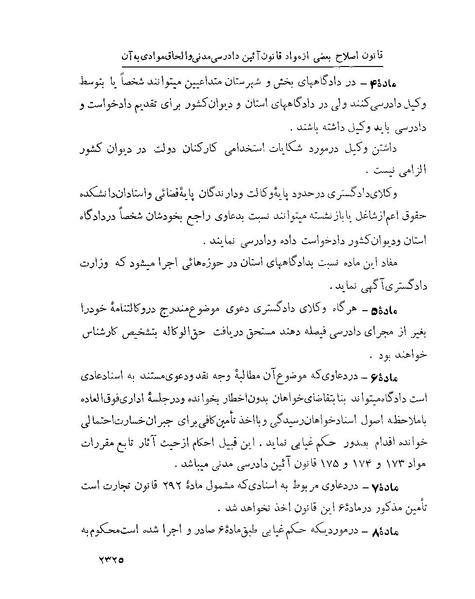 قانون اصلاح بعضی از مواد قانون آئین دادرسی مدنی و الحاق موادی به آن
مادهٔ ۴ - در دادگاههای بخش و شهرستان متداعیین میتوانند شخصاً یا بتوسط
وکیل دادرسی کنند ولی در دادگاههای استان و دیوان کشور برای تقدیم دادخواست و
دادرسی باید وکیل داشته باشند .
داشتن وکیل درمورد شکایات استخدامی کارکنان دولت در دیوان کشور
الزامی نیست .
وکلای دادگستری درحدود پایهٔ وکالت ودارندگان پایهٔ قضائی واستادان دانشکده
حقوق اعم از شاغل یا بازنشسته میتوانند نسبت بدعاوی راجع بخودشان شخصاً دردادگاه
استان ودیوان کشور دادخواست داده ودادرسی نمایند .
مفاد این ماده نسبت بدادگاههای استان در حوزه‌هائی اجرا میشود که وزارت
دادگستری آگهی نماید .
مادهٔ ۵ - هرگاه وکلای دادگستری دعوی موضوع مندرج دروکالتنامهٔ خودرا
بغیر از مجرای دادرسی فیصله دهند مستحق دریافت حق‌الوکاله بتشخیص کارشناس
خواهند بود .
مادهٔ ۶ - دردعاوی که موضوع آن مطالبهٔ وجه نقد ودعوی مستند به اسناد عادی
است دادگاه میتواند بنا بتقاضای خواهان بدون اخطار بخوانده ودرجلسهٔ اداری فوق‌العاده
باملاحظه اصول اسناد خواهان رسیدگی و با اخذ تأمین کافی برای جبران خسارت احتمالی
خوانده اقدام بصدور حکم غیابی نماید . این قبیل احکام از حیث آثار تابع مقررات
مواد ۱۷۳ و ۱۷۴ و ۱۷۵ قانون آئین دادرسی مدنی میباشد .
مادهٔ ۷ - دردعاوی مربوط به اسنادی که مشمول مادهٔ ۲۹۲ قانون تجارت است
تأمین مذکور درمادهٔ ۶ این قانون اخذ نخواهد شد .
مادهٔ ۸ - درموردیکه حکم غیابی طبق مادهٔ ۶ صادر و اجرا شده است محکوم به
۲۳۲۵